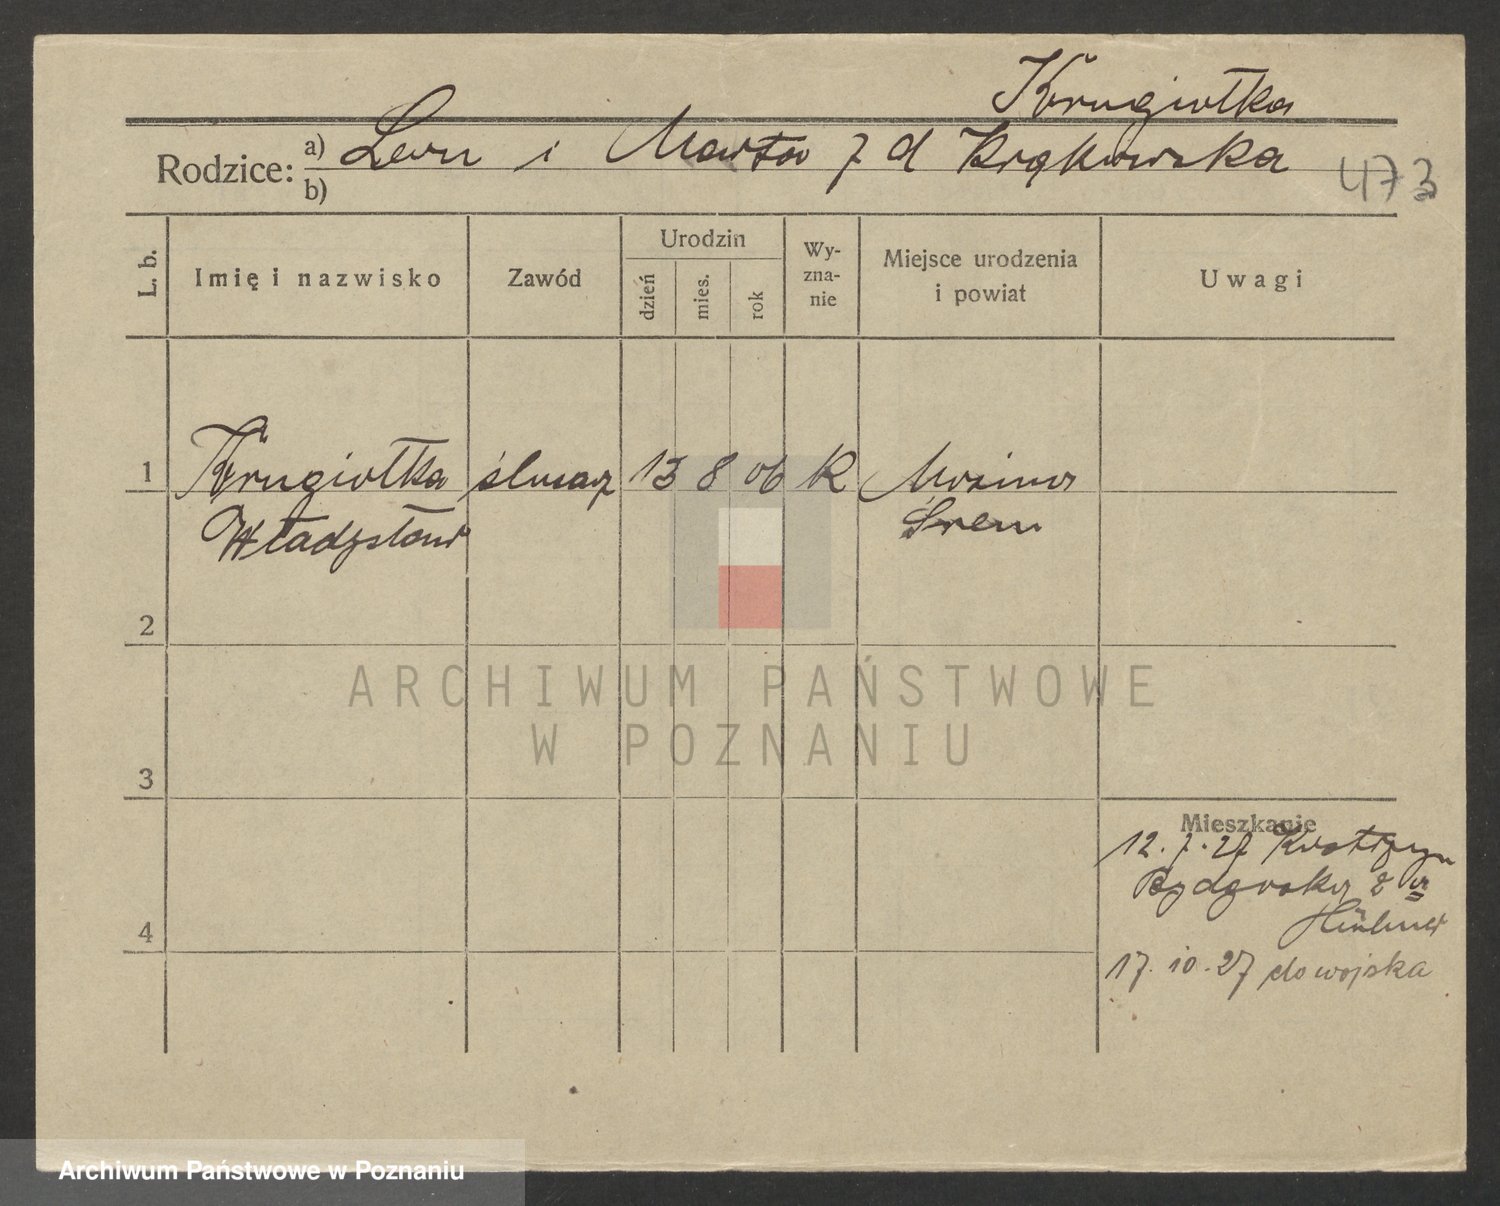 Krugiołka
Rodzice: a) Leon i Marta z d Krąkowska
b)
473
L. b.
Imię i nazwisko
Zawód
Urodzin
dzień
mies.
rok
Wy-
zna-
nie
Miejsce urodzenia
i powiat
Uwagi
1 Krugiołka ślusarz 13 8 06 K
Władysław Śrem
2
ARCHIWUM PAŃSTWOWE
W POZNANIU
3
Mieszkanie
12.7.27 Kostrzyn
2
4
17.10.27 do wojska
Archiwum Państwowe w Poznaniu